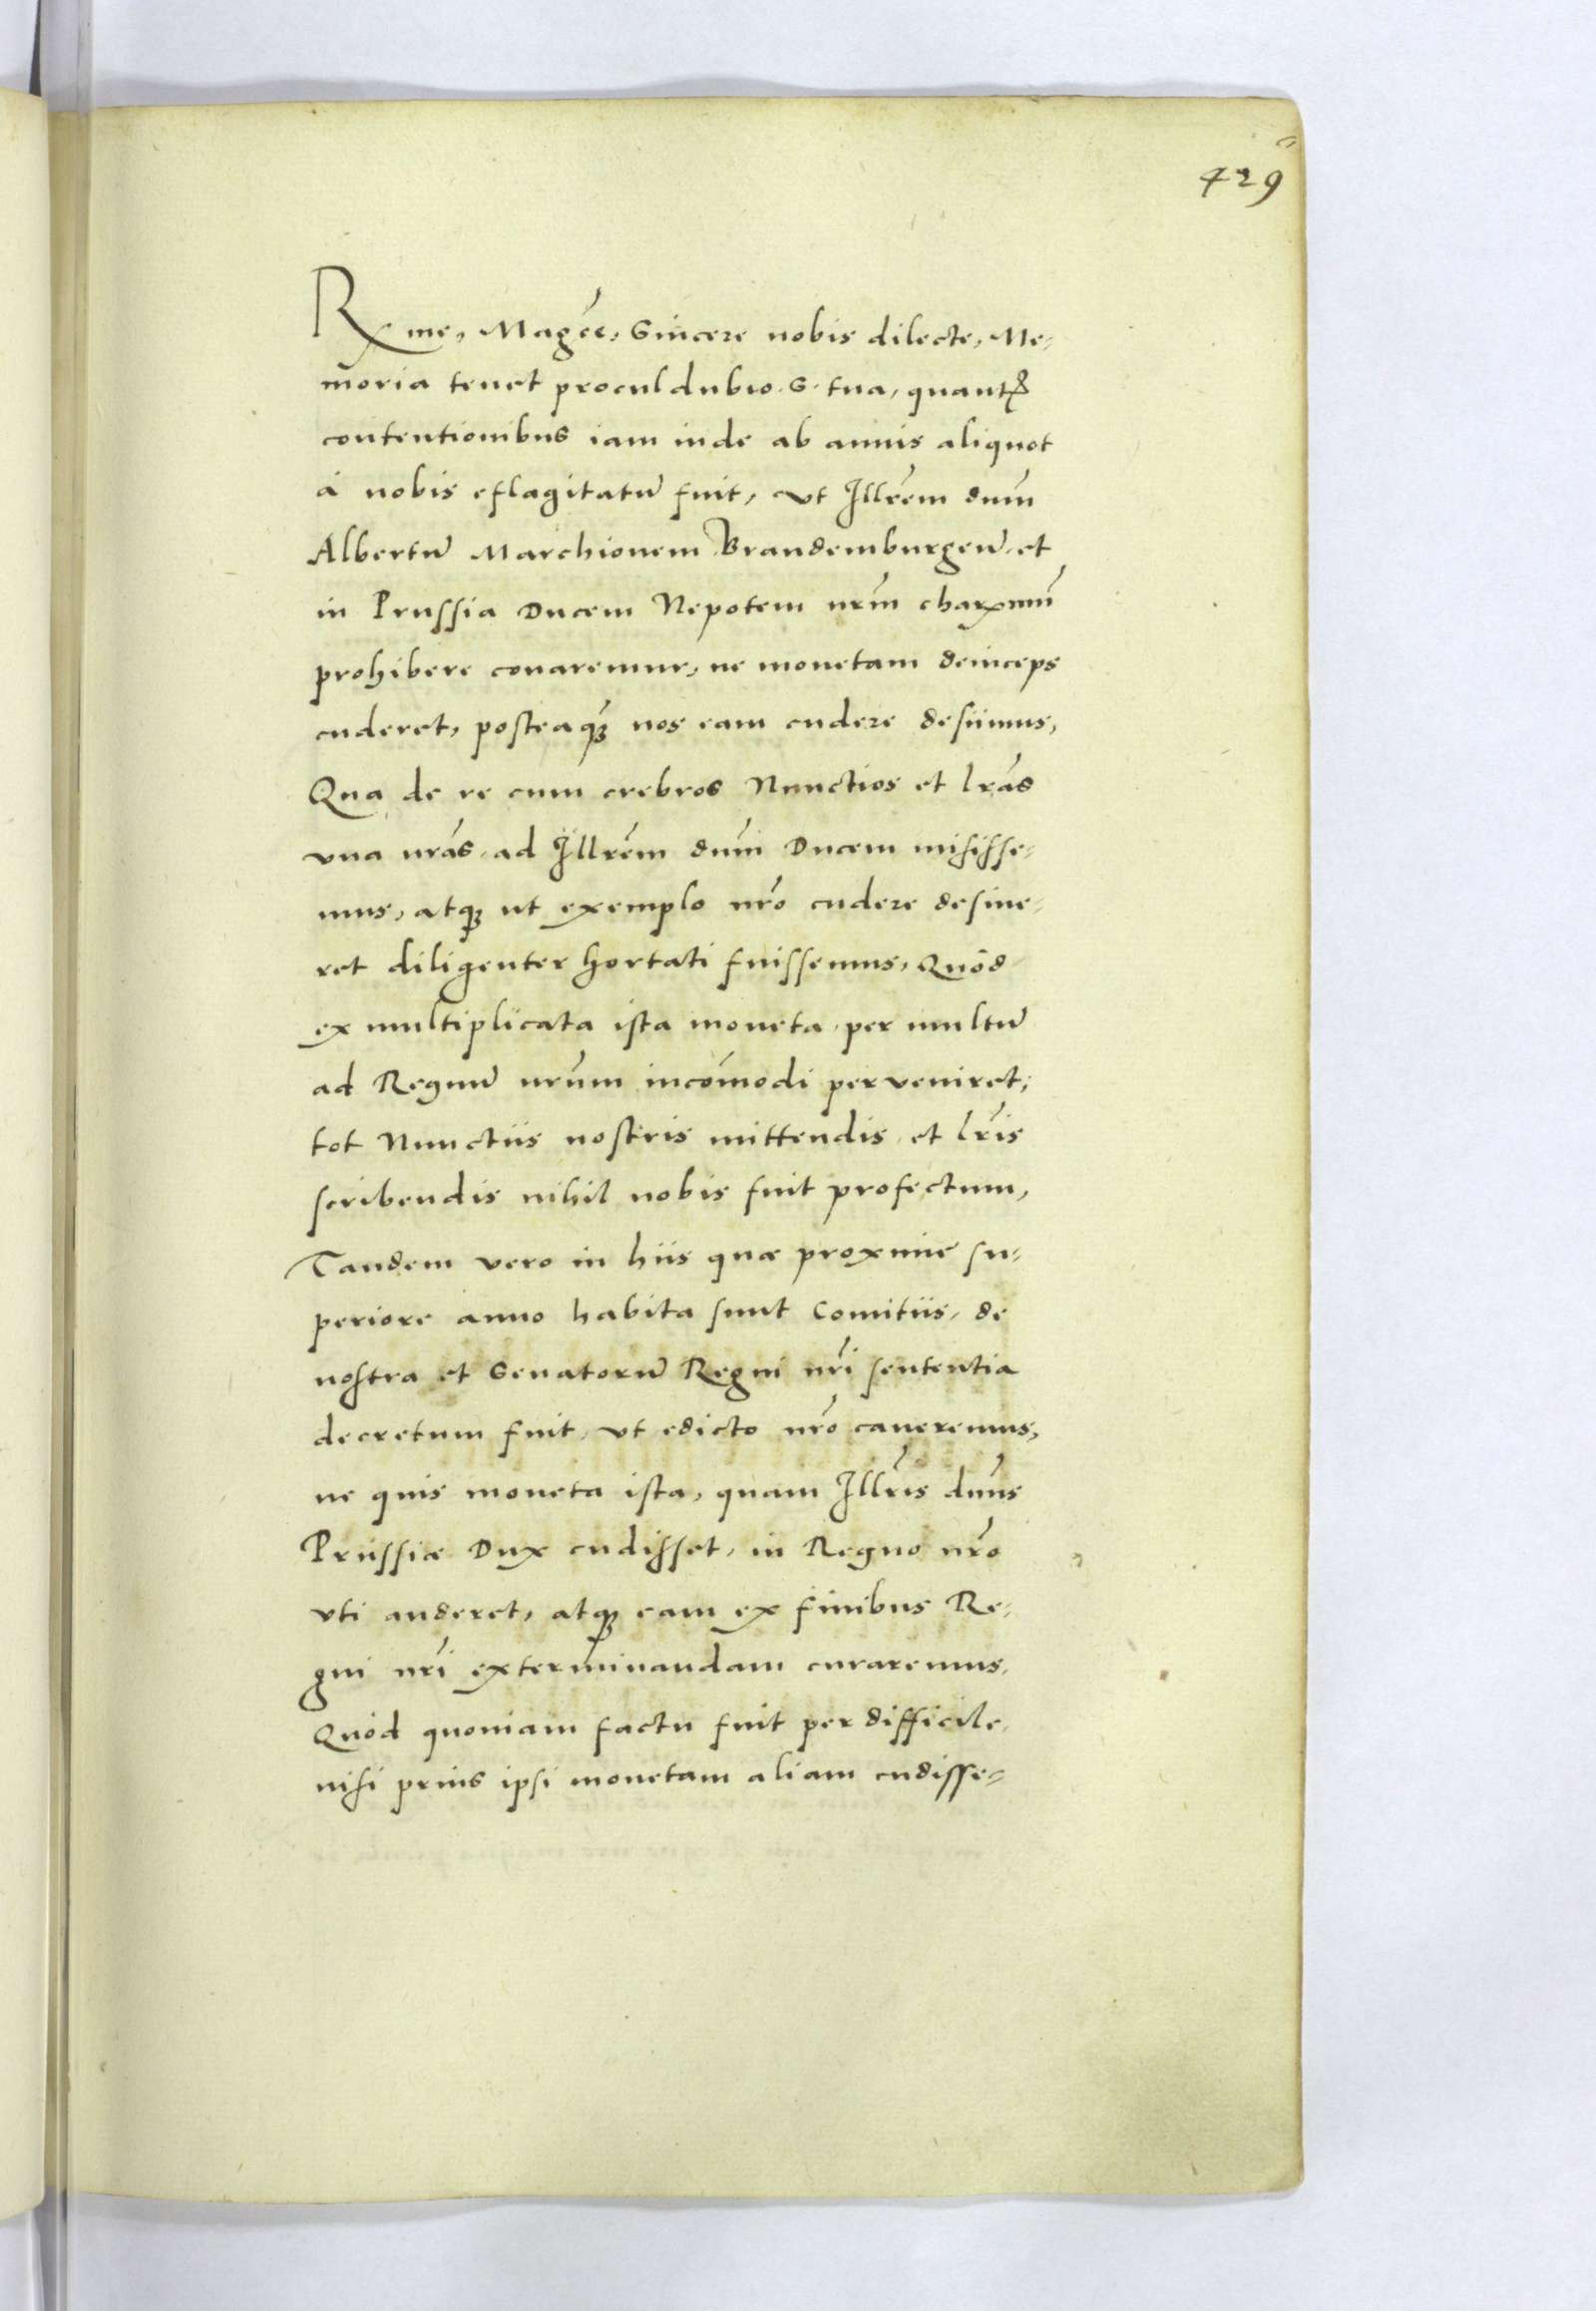 429
Rxme, Magce, Sincere nobis dilecte, Me-
moria tenet proculdubio S. tua, quantis
contentionibus iam inde ab annis aliquot
à nobis eflagitatū fuit, vt Illrēm dnūm
Albertū Marchionem Brandemburgeñ et
in Prussia Ducem Nepotem nrm̄ charxmū
prohibere conaremur, ne monetam deinceps
cuderet, posteaq̃ꝫ nos eam cudere desiimus,
Qua de re cum crebros Nunctios et lrās
vna nrās, ad Illrēm dnūm Ducem misisse-
mus, atqꝫ ut exemplo nrō cudere desine-
ret diligenter hortati fuissemus, Quòd
ex multiplicata ista moneta, per multū
ad Regnū nrūm incōmodi perveniret,
tot Nunctiis nostris mittendis, et lrīs
scribendis nihil nobis fuit profectum,
Tandem vero in hiis quæ proxime su-
periore anno habita sunt Comitiis, de
nostra et Senatorū Regni nrī sententia
decretum fuit, vt edicto nrō caveremus,
ne quis moneta ista, quam Illrīs dnūs
Prussiæ Dux cudisset, in Regno nrō
vti auderet, atqꝫ eam ex finibus Re-
gni nrī exterminandam curaremus.
Quòd quoniam factu fuit per difficile,
nisi prius ipsi monetam aliam cudisse-